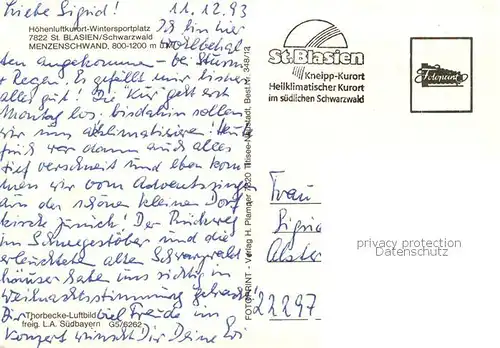 Liebe Sigrid! 11.12.93
Höhenluftkurort-Wintersportplatz
7822 St. BLASIEN/Schwarzwald
MENZENSCHWAND, 800-1200 m
Ich bin hier
wohlbehal-
ten angekommen – bei Sturm
+ Regen. Es gefällt mir bisher
alles gut! Die Kur geht erst
Montag los, bis dahin sollen
wir uns aklimatisieren! Heute
früh war dann auch alles
tief verschneit und eben kom-
men wir vom Adventssingen
aus der schönen kleinen Dorf
kirche zurück! Der Rückweg
im Schneegestöber und die
erleuchteten alten Schwarzwald
häuser haben uns richtig in
Weihnachtsstimmung gebracht!
Dir viel Freude im
Thorbecke-Luftbild
freig. L.A. Südbayern G5/6262
Konzert wünscht Dir Deine
FOTOPRINT - Verlag H. Plamper 7820 Titisee-Neustadt, Best.Nr. 348/12
St.Blasien
Kneipp-Kurort
Heilklimatischer Kurort
im südlichen Schwarzwald
Fotoprint
Frau
Sigrid
Alster
22297
privacy protection
Datenschutz